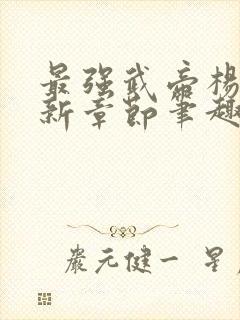 最强武帝楊
新章節筆趣
嚴元健一 星